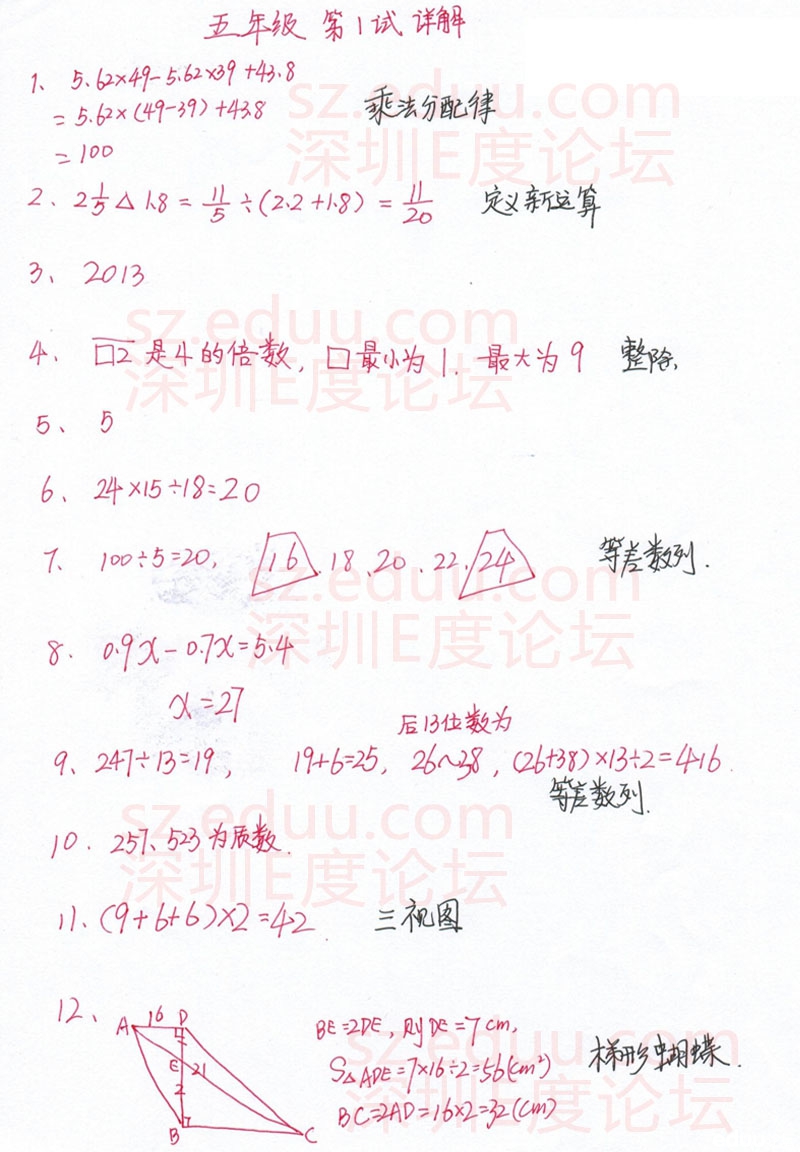 五年级 第1试 详解
1、 5.62×49-5.62×39+43.8
=5.62×(49-39)+43.8 乘法分配律
=100
2、 2 1/5 △ 1.8 = 11/5 ÷(2.2+1.8) = 11/20 定义新运算
3、 2013
4、 □2 是4的倍数，□最小为1. 最大为9 整除、
5、 5
6、 24×15÷18=20
7、 100÷5=20, 16、18、20、22、24 等差数列.
8. 0.9x-0.7x=5.4
x=27
后13位数为
9、 247÷13=19, 19+6=25, 26~38, (26+38)×13÷2=416.
等差数列.
10. 257、523为质数.
11、 (9+6+6)×2=42 三视图
12、 A 16 D BE=2DE, 则DE=7cm,
E 21 S△ADE=7×16÷2=56(cm²) 梯形蝴蝶.
2 BC=2AD=16×2=32(cm)
B C
sz.eduu.com
深圳E度论坛
sz.eduu.com
深圳E度论坛
sz.eduu.com
深圳E度论坛
sz.eduu.com
深圳E度论坛
sz.eduu.com
深圳E度论坛